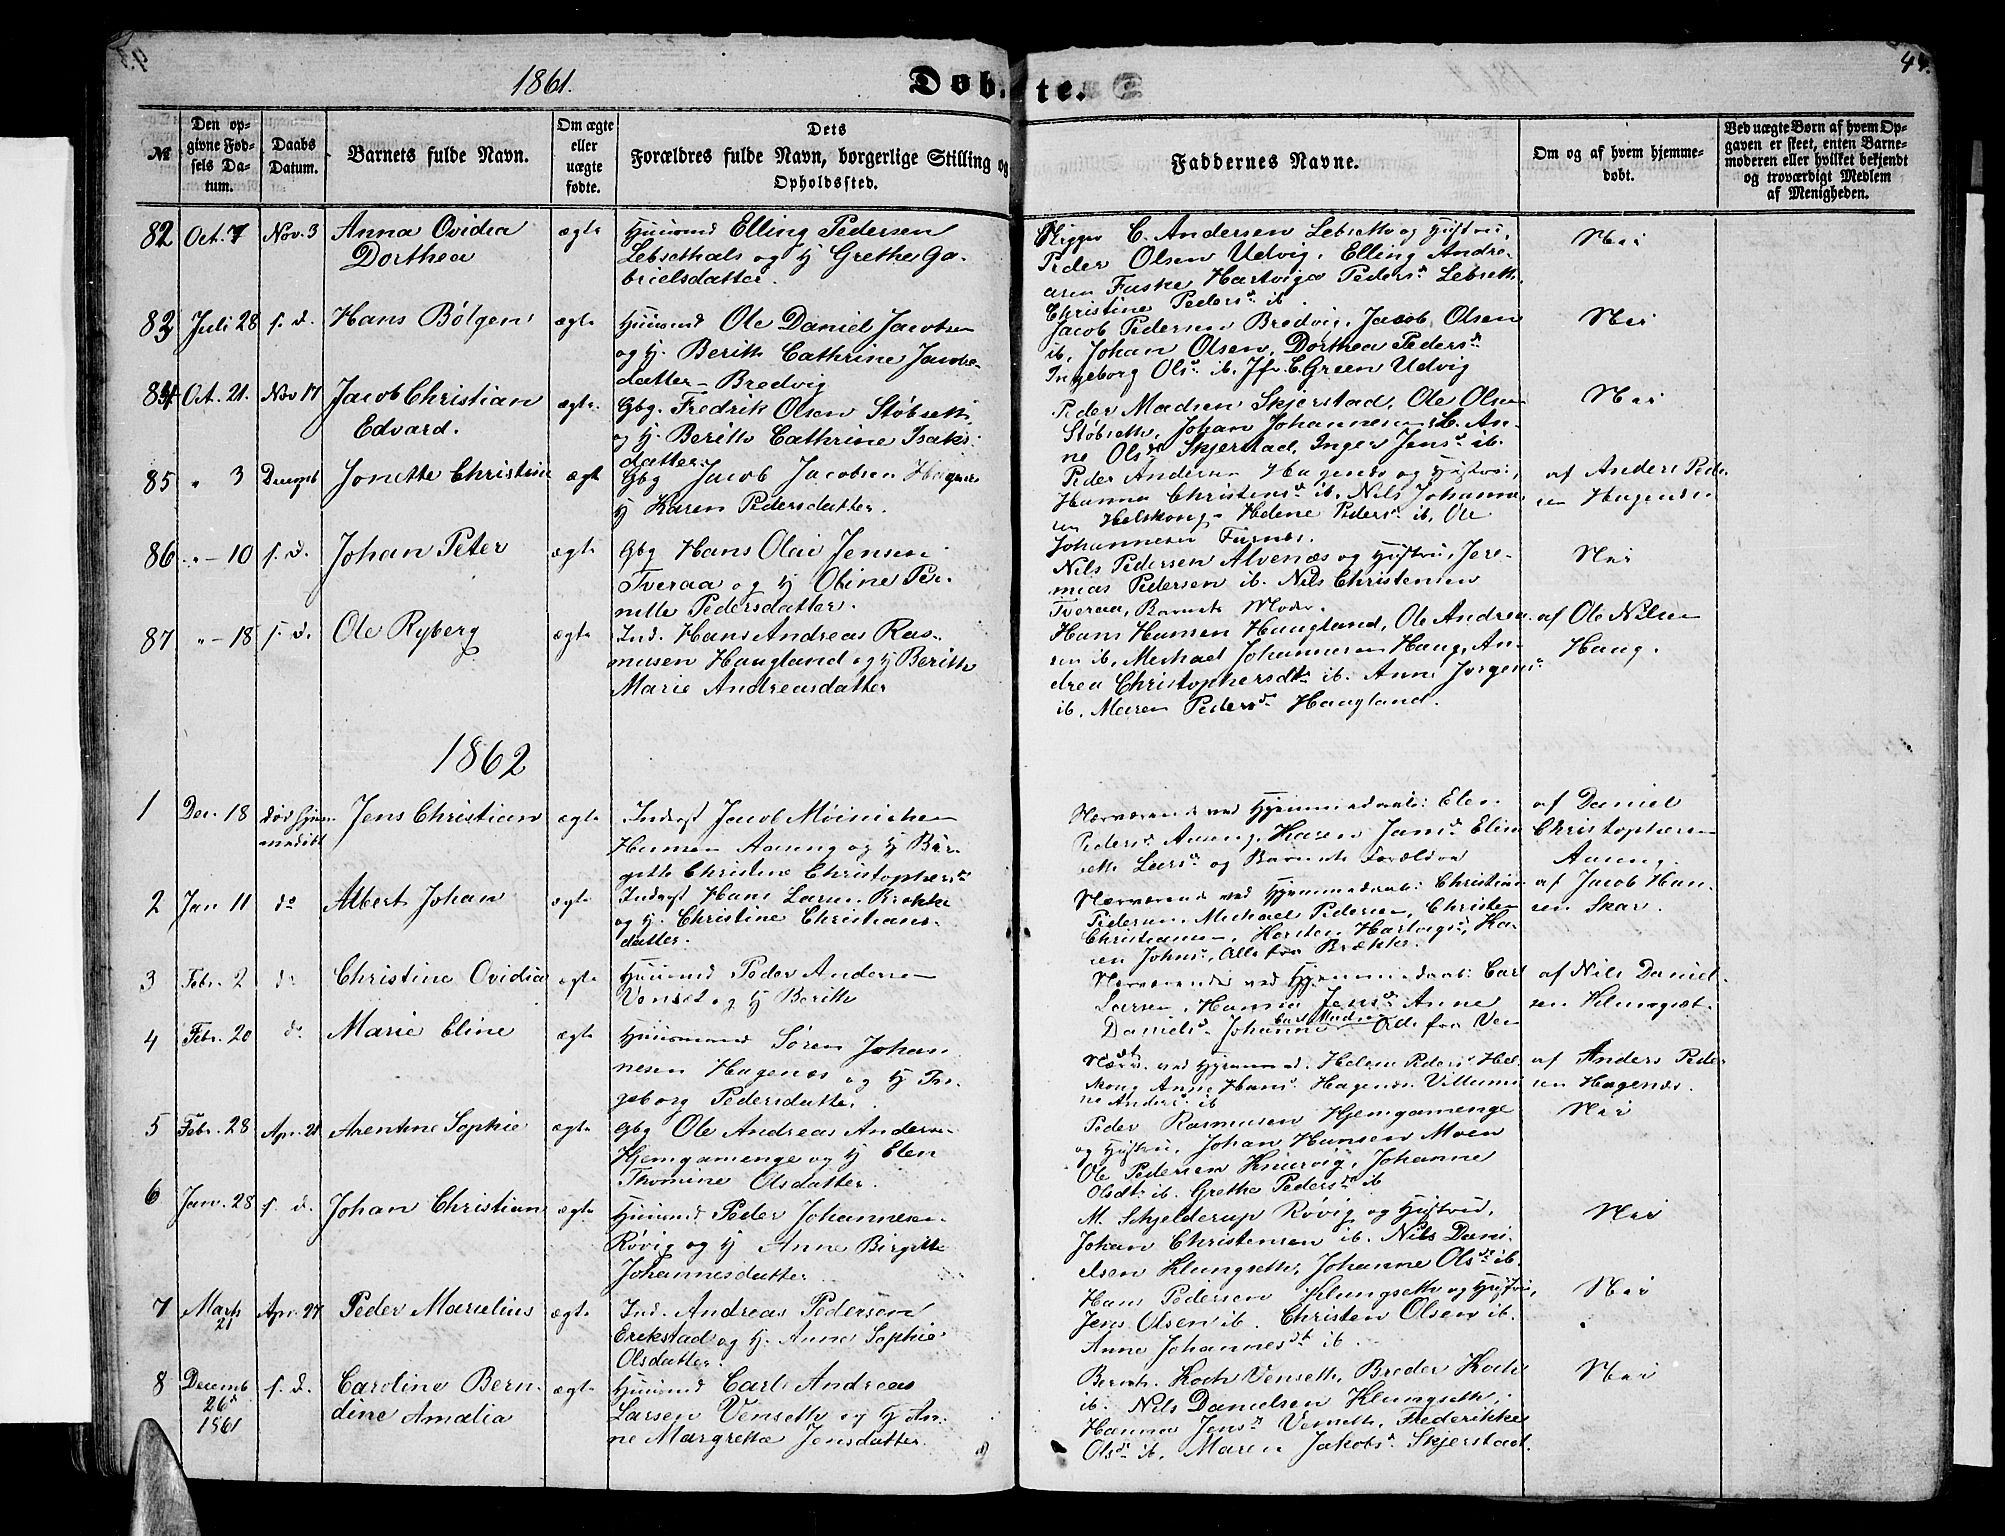 1861.
Døbte.
44.
№
Den opgivne Fødsels Datum.
Daabs Datum.
Barnets fulde Navn.
Om ægte eller uægte fødte.
Dets
Forældres fulde Navn, borgerlige Stilling og
Opholdssted.
Faddernes Navne.
Om og af hvem hjemmedøbt.
Ved uægte Børn af hvem Opgaven er skeet, enten Barnemoderen eller hvilket bekjendt og troværdigt Medlem af Menigheden.
82 Oct. 7 Nov. 3 Anna Ovidia
Dorthea
ægte
Huusmd Elling Pedersen
Lebsethals og H Grethe Ga-
brielsdatter.
C. Andersen Lebseth og Hustru,
Peder Olsen Udvig, Elling Andre-
asen Fuske Hartviga Peders d. Lebseth
Christine Peders d. ib.
Nei
83 Juli 28 s. d. Hans Bølgen
ægte
Huusmd Ole Daniel Jacobsen
og H. Berith Cathrine Jacobs-
datter - Bredvig
Jacob Pedersen Bredvig, Jacob Olsen
ib. Johan Olsen, Dorthea Peders d.
Ingeborg Ols d. ib. Jfr C. Green Udvig
Nei
84 Oct. 21. Nov 17 Jacob Christian
Edvard.
ægte
Gbg. Fredrik Olsen Støbseth
og H. Berith Cathrine Isaks-
datter.
Peder Madsen Skjerstad, Ole Olsen
Støbseth, Johan Johannesen ib. An-
ne Ols d. Skjerstad, Inger Jens d. ib.
Nei
85 " 3 Decemb Jonette Christine
ægte
Gbg Jacob Jacobsen Hagenæs
H Karen Pedersdatter.
Peder Andersen Hagenæs og Hustru,
Hanna Christens d. ib. Nils Johanne-
sen Helskong - Helene Peders d. ib. Ole
Johannesen Furnes.
af Anders Peder-
sen Hagenæs
86 " - 10 s. d. Johan Peter
ægte
Gbg Hans Olai Jensen
Tveraa og H Oline Per-
nille Pedersdatter.
Nils Pedersen Alvenæs og Hustru, Jere-
mias Pedersen ib. Nils Christensen
Tveraa, Barnets Moder.
Nei
87 " - 18 s. d. Ole Ryberg
ægte
Ind. Hans Andreas Ras-
musen Haagland og H Berith
Marie Andreasdatter
Hans Hansen Haagland, Ole Andrea-
sen ib. Michael Johannesen Haug, An-
drea Christophersdt ib. Anne Jørgens d.
ib. Maren Peders d. Haagland.
af Ole Nilsen
Haug.
1862
1 Dec. 18 død hjem-
medøbt
Jens Christian
ægte
Inderst Jacob Moinichen
Hansen Aasung og H Bir-
gitte Christine Christophers d.
Nærværende ved Hjemmedaab: Elen
Peders d. Aasung, Karen Jans d. Elisa-
beth Lars d. og Barnets Forældre
af Daniel
Christophersen
Aasung.
2 Jan 11 do Albert Johan
ægte
Inderst Hans Larsen Brække
og H. Christine Christians-
datter.
Nærværende ved Hjemmedaab: Christian
Pedersen, Michael Pedersen, Christen
Christiansen, Karsten Hartvigs d., Ka-
ren Johns d., Alle fra Brække.
af Jacob Han-
sen Skar.
3 Febr. 2 do Christine Ovidia
ægte
Huusmd Peder Andersen
Venset og H Berith
Nærværende ved Hjemmedaab: Carl
Larsen, Hanna Jens d. Anne
Daniels d. Johanne Carl Madsen Alle fra Ven
af Nils Daniel-
sen Klungsæt.
4 Febr. 20 do Marie Eline
ægte
Huusmand Søren Johan-
nesen Hagenæs og H In-
geborg Pedersdatter.
Nærv. ved Hjemmed. Helene Peders d. Hel-
skong Anne Hans d. Hagenæs. Villumi-
ne Anders d. ib
af Anders Peder-
sen Hagenæs.
5 Febr. 28 Apr. 21 Arentine Sophie
ægte
Gbg Ole Andreas Andersen
Hjemgamenge og H Elen
Thomine Olsdatter.
Peder Rasmusen Hjemgamenge
og Hustru, Johan Hansen Moen
Ole Pedersen Kniurvig, Johanne
Olsdt. ib. Grethe Peders d. ib
Nei
6 Janv. 28 s. d. Johan Christian
ægte
Huusmd Peder Johannesen
Røvig og H Anne Birgitte
Johannesdatter
M. Skjelderup Røvig og Hustru,
Johan Christensen ib. Nils Dani-
elsen Klungseth, Johanne Ols d. ib.
Nei
7 Marts
21
Apr. 27 Peder Marselius
ægte
Ind. Andreas Pedersen
Erikstad og H. Anne Sophie
Olsdatter.
Hans Pedersen Klungseth og Hustru,
Jens Olsen ib. Christen Olsen ib.
Anne Johannesdt ib.
Nei
8 Decemb
26 d.
1861
s. d. Caroline Bern-
dine Amalia
ægte
Huusmd Carl Andreas
Larsen Venseth og H An-
ne Margrethe Jensdatter.
Bernh. Koch Venseth, Breder Koch
ib. Nils Danielsen Klungseth,
Hanna Jens d. Venseth, Frederikke
Ols d. ib. Maren Jakobs d. Skjerstad.
Nei